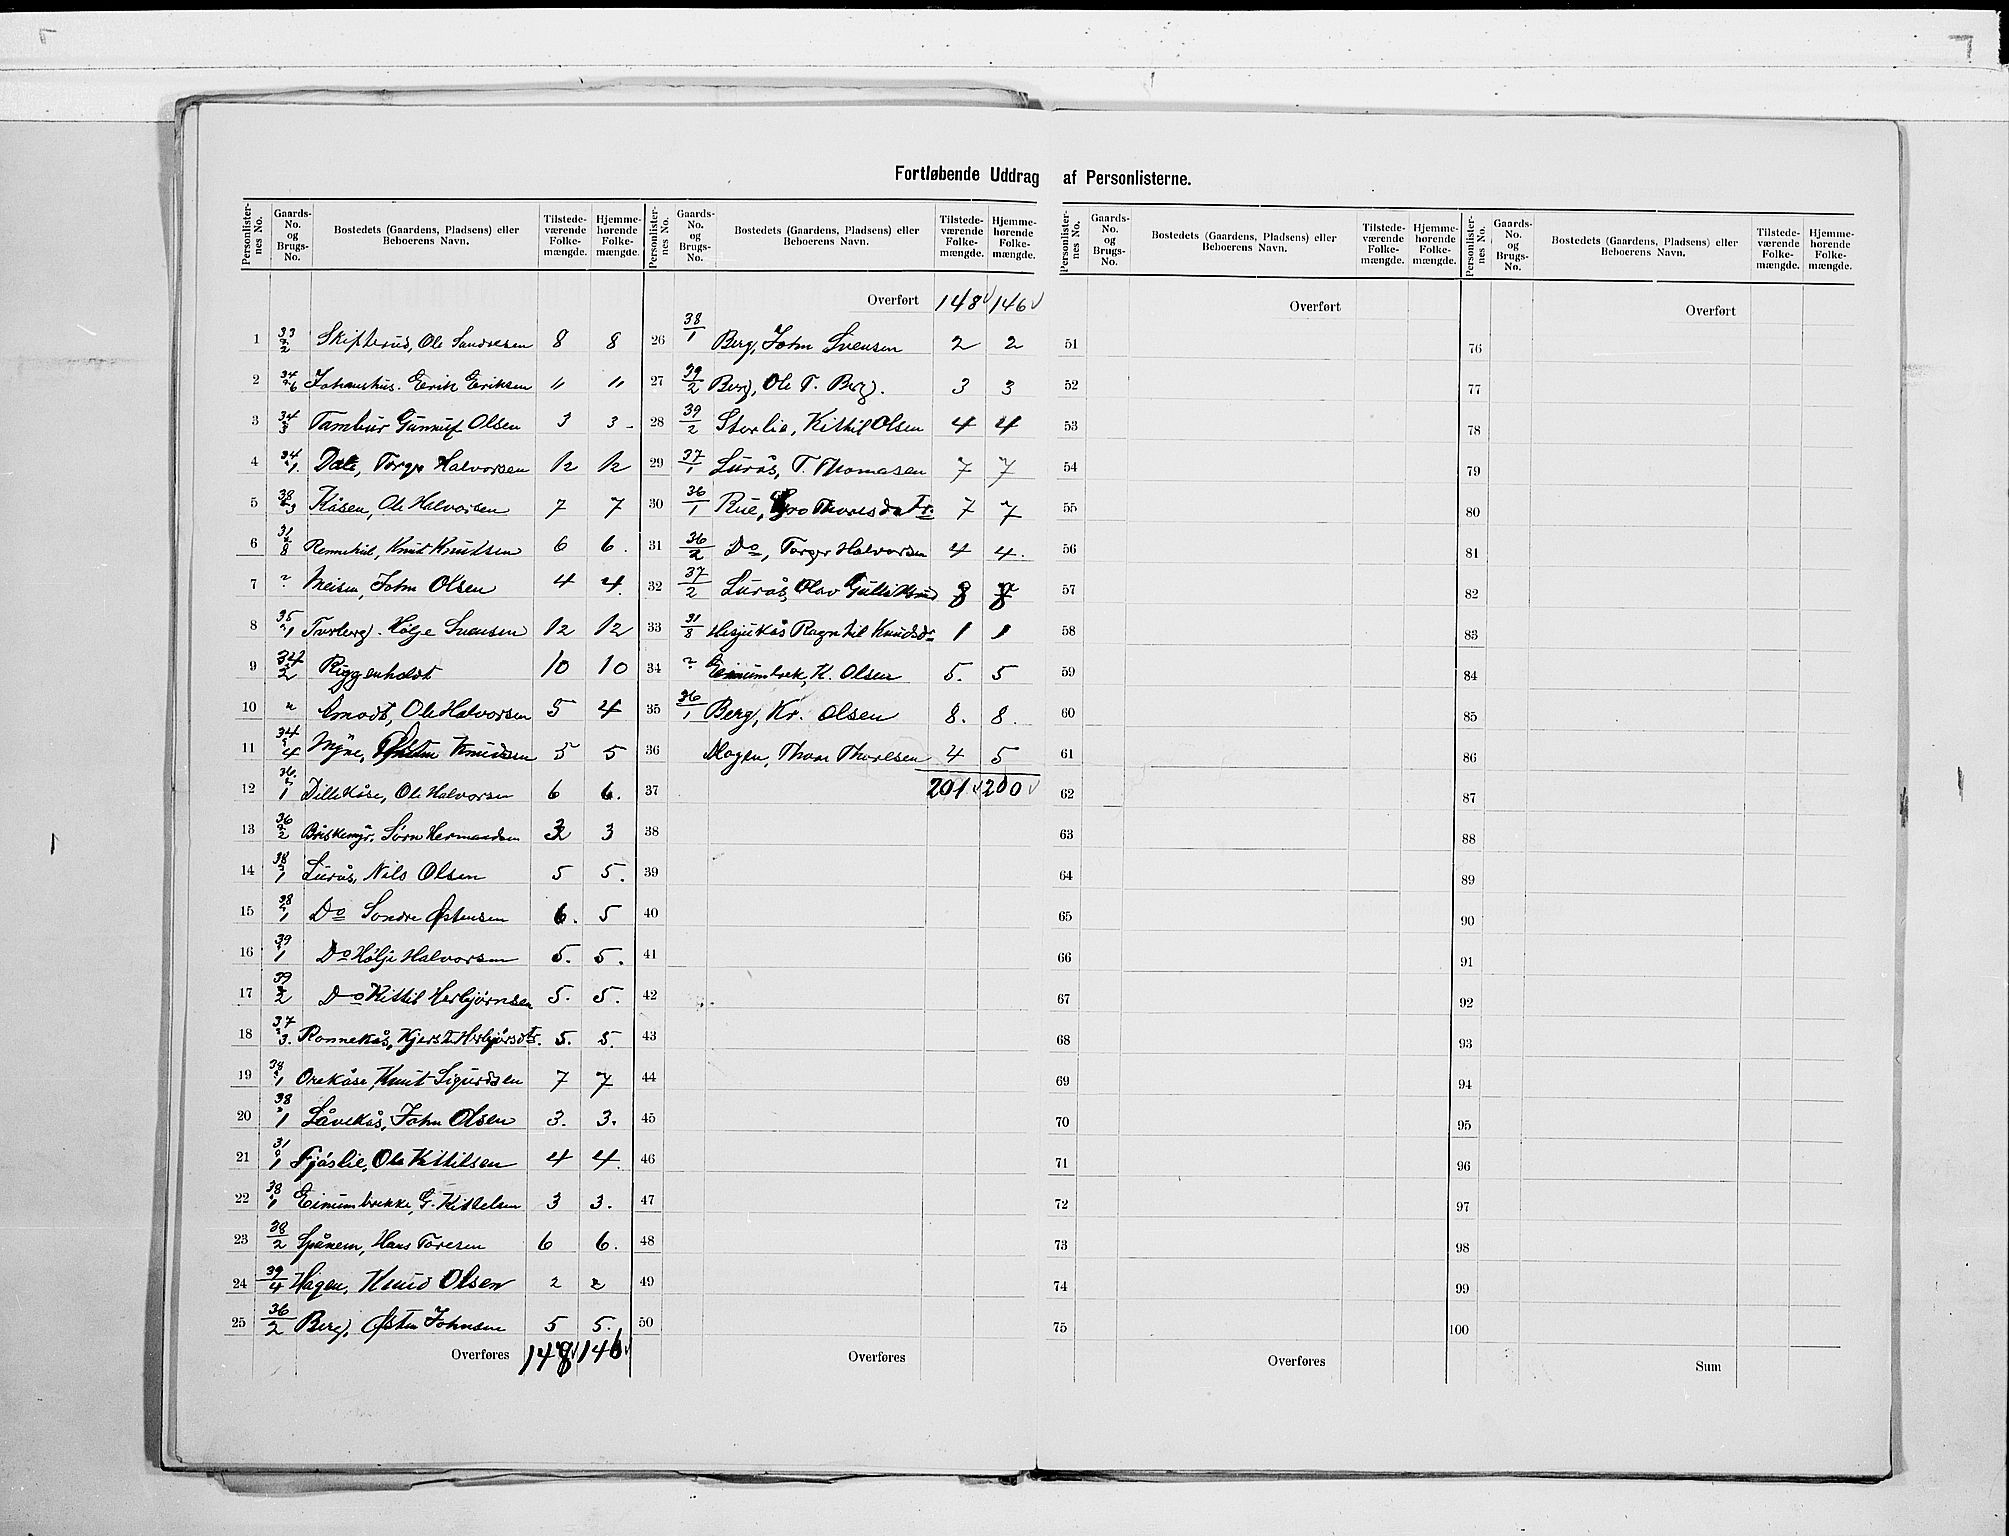 Fortløbende Uddrag af Personlisterne.
Personlisternes No. Gaards-No. og Brugs-No. Bostedets (Gaardens, Pladsens) eller Beboerens Navn. Tilstedeværende Folkemængde. Hjemmehørende Folkemængde.
1 33/2 Skifterud, Ole Sondresen 8 8
2 34/6 Johanshus. Eerik Eriksen 11 11
3 34/3 Tambur Gunnuf Olsen 3 3
4 34/1 Dale, Torger Halvorsen 12 12
5 38/3 Kåsen, Ole Halvorsen 7 7
6 31/8 Knut Knudsen 6 6.
7 " Meisen, John Olsen 4 4.
8 35/1 Tvrberg. Hølje Svensen 12 12
9 34/2 Riggenholdt 10 10
10 " Amodt, Ole Halvorsen 5 4
11 34/4 Myne, Knudsen 5 5
12 36/1 Dillekåse, Ole Halvorsen 6 6.
13 36/2 Briskemyr. Sørn Hermandsen 3 3
14 38/1 Lurås, Nils Olsen 5 5.
15 38/1 Do Sondre Østensen 6. 5
16 39/1 Do Hølje Halvorsen 5. 5.
17 39/2 Do Kittil Herbjørnsen 5. 5.
18 37/3. Ronnekås, Kjersti Herbjørsdtr. 5. 5.
19 38/1 Orekåse, Knut Sigurdsen 7 7
20 38/1 Låvekås, John Olsen 3. 3.
21 31/1 Fjøslie, Ole Kittilsen 4 4.
22 38/1 Einumbrekke, G. Kittelsen 3 3.
23 38/2 Spånem, Hans Toresen 6 6.
24 39/4 Hagen, Knud Olsen 2 2
25 36/2 Berg, Østen Johnsen 5 5.
Overføres 148 146
Personlisternes No. Gaards-No. og Brugs-No. Bostedets (Gaardens, Pladsens) eller Beboerens Navn. Tilstedeværende Folkemængde. Hjemmehørende Folkemængde.
Overført 148 146
26 38/1 Berg, John Svensen 2 2
27 39/2 Berg, Ole T. Berg. 3 3
28 39/2 Storlie, Kittil Olsen 4 4
29 37/1 Lurås, T. Thomasen 7 7
30 36/1 Rue, Gro Thoresdatr. 7 7
31 36/2 Do, Torger Halvorsen 4 4.
32 37/2 Lurås, Olav Gulliksen 8 8
33 31/8 Hesjukås Ragnhil Knudsdr 1 1
34 " Einumbrek, K. Olsen 5. 5
35 36/1 Berg, Kr. Olsen 8. 8.
36 Mogen, Thore Thoresen 4 5
37 201 200
38
39
40
41
42
43
44
45
46
47
48
49
50
Overføres
Personlisternes No. Gaards-No. og Brugs-No. Bostedets (Gaardens, Pladsens) eller Beboerens Navn. Tilstedeværende Folkemængde. Hjemmehørende Folkemængde.
Overført
51
52
53
54
55
56
57
58
59
60
61
62
63
64
65
66
67
68
69
70
71
72
73
74
75
Overføres
Personlisternes No. Gaards-No. og Brugs-No. Bostedets (Gaardens, Pladsens) eller Beboerens Navn. Tilstedeværende Folkemængde. Hjemmehørende Folkemængde.
Overført
76
77
78
79
80
81
82
83
84
85
86
87
88
89
90
91
92
93
94
95
96
97
98
99
100
Sum